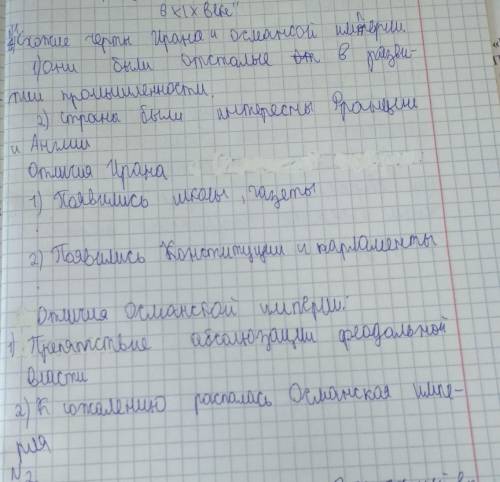 в XIX веке"
Схожие черты Ирана и османсой империи.
1) Они были отсталые в разви-
тии промышленности.
2) страны были интересны Франции
и Англии
Отличия Ирана
1) Появились школы, газеты
2) Появились Конституции и парламенты
Отличия Османской империи:
1) Препятствие абсолюзации феодальной
власти
2) К сожалению распалась Османская импе-
рия
№2.